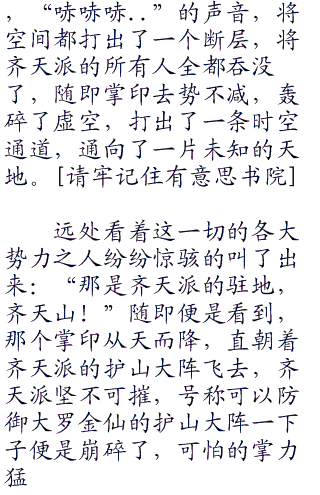 ，“哧哧哧．．”的声音，将
空间都打出了一个断层，将
齐天派的所有人全都吞没
了，随即掌印去势不减，轰
碎了虚空，打出了一条时空
通道，通向了一片未知的天
地。[请牢记住有意思书院]
远处看着这一切的各大
势力之人纷纷惊骇的叫了出
来：“那是齐天派的驻地，
齐天山！”随即便是看到，
那个掌印从天而降，直朝着
齐天派的护山大阵飞去，齐
天派坚不可摧，号称可以防
御大罗金仙的护山大阵一下
子便是崩碎了，可怕的掌力
猛